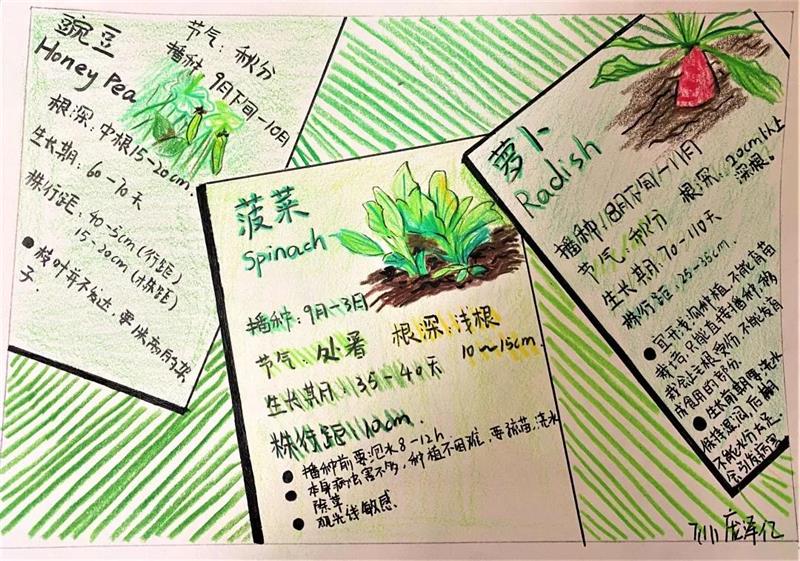 豌豆
Honey Pea
节气：秋分
播种 9月下旬-10月
根深：中根15-20cm
生长期：60-70天
株行距：40-5cm(行距)
15-20cm(株距)
枝叶并不发达，要
子.
菠菜
Spinach
播种：9月-3日
节气：处暑
根深：浅根
10～15cm.
生长期：35-40天
株行距：10cm.
播种前要泡水8-12h
本身病虫害不多，种植不困难，要疏苗，浇水
除草
观光线敏感.
萝卜
Radish
播种：8月下旬-11月
根深：20cm以上
深根。
节气：秋分
生长期：70-110天
株行距：25-35cm.
宜开浅沟种植，不能育苗
栽培只能直接播种，移
栽会让主根受伤不能发育
成食用的部分.
生长前期要浇水
保持湿润，后期
不能水分太足.
会引发病害
庞泽亿